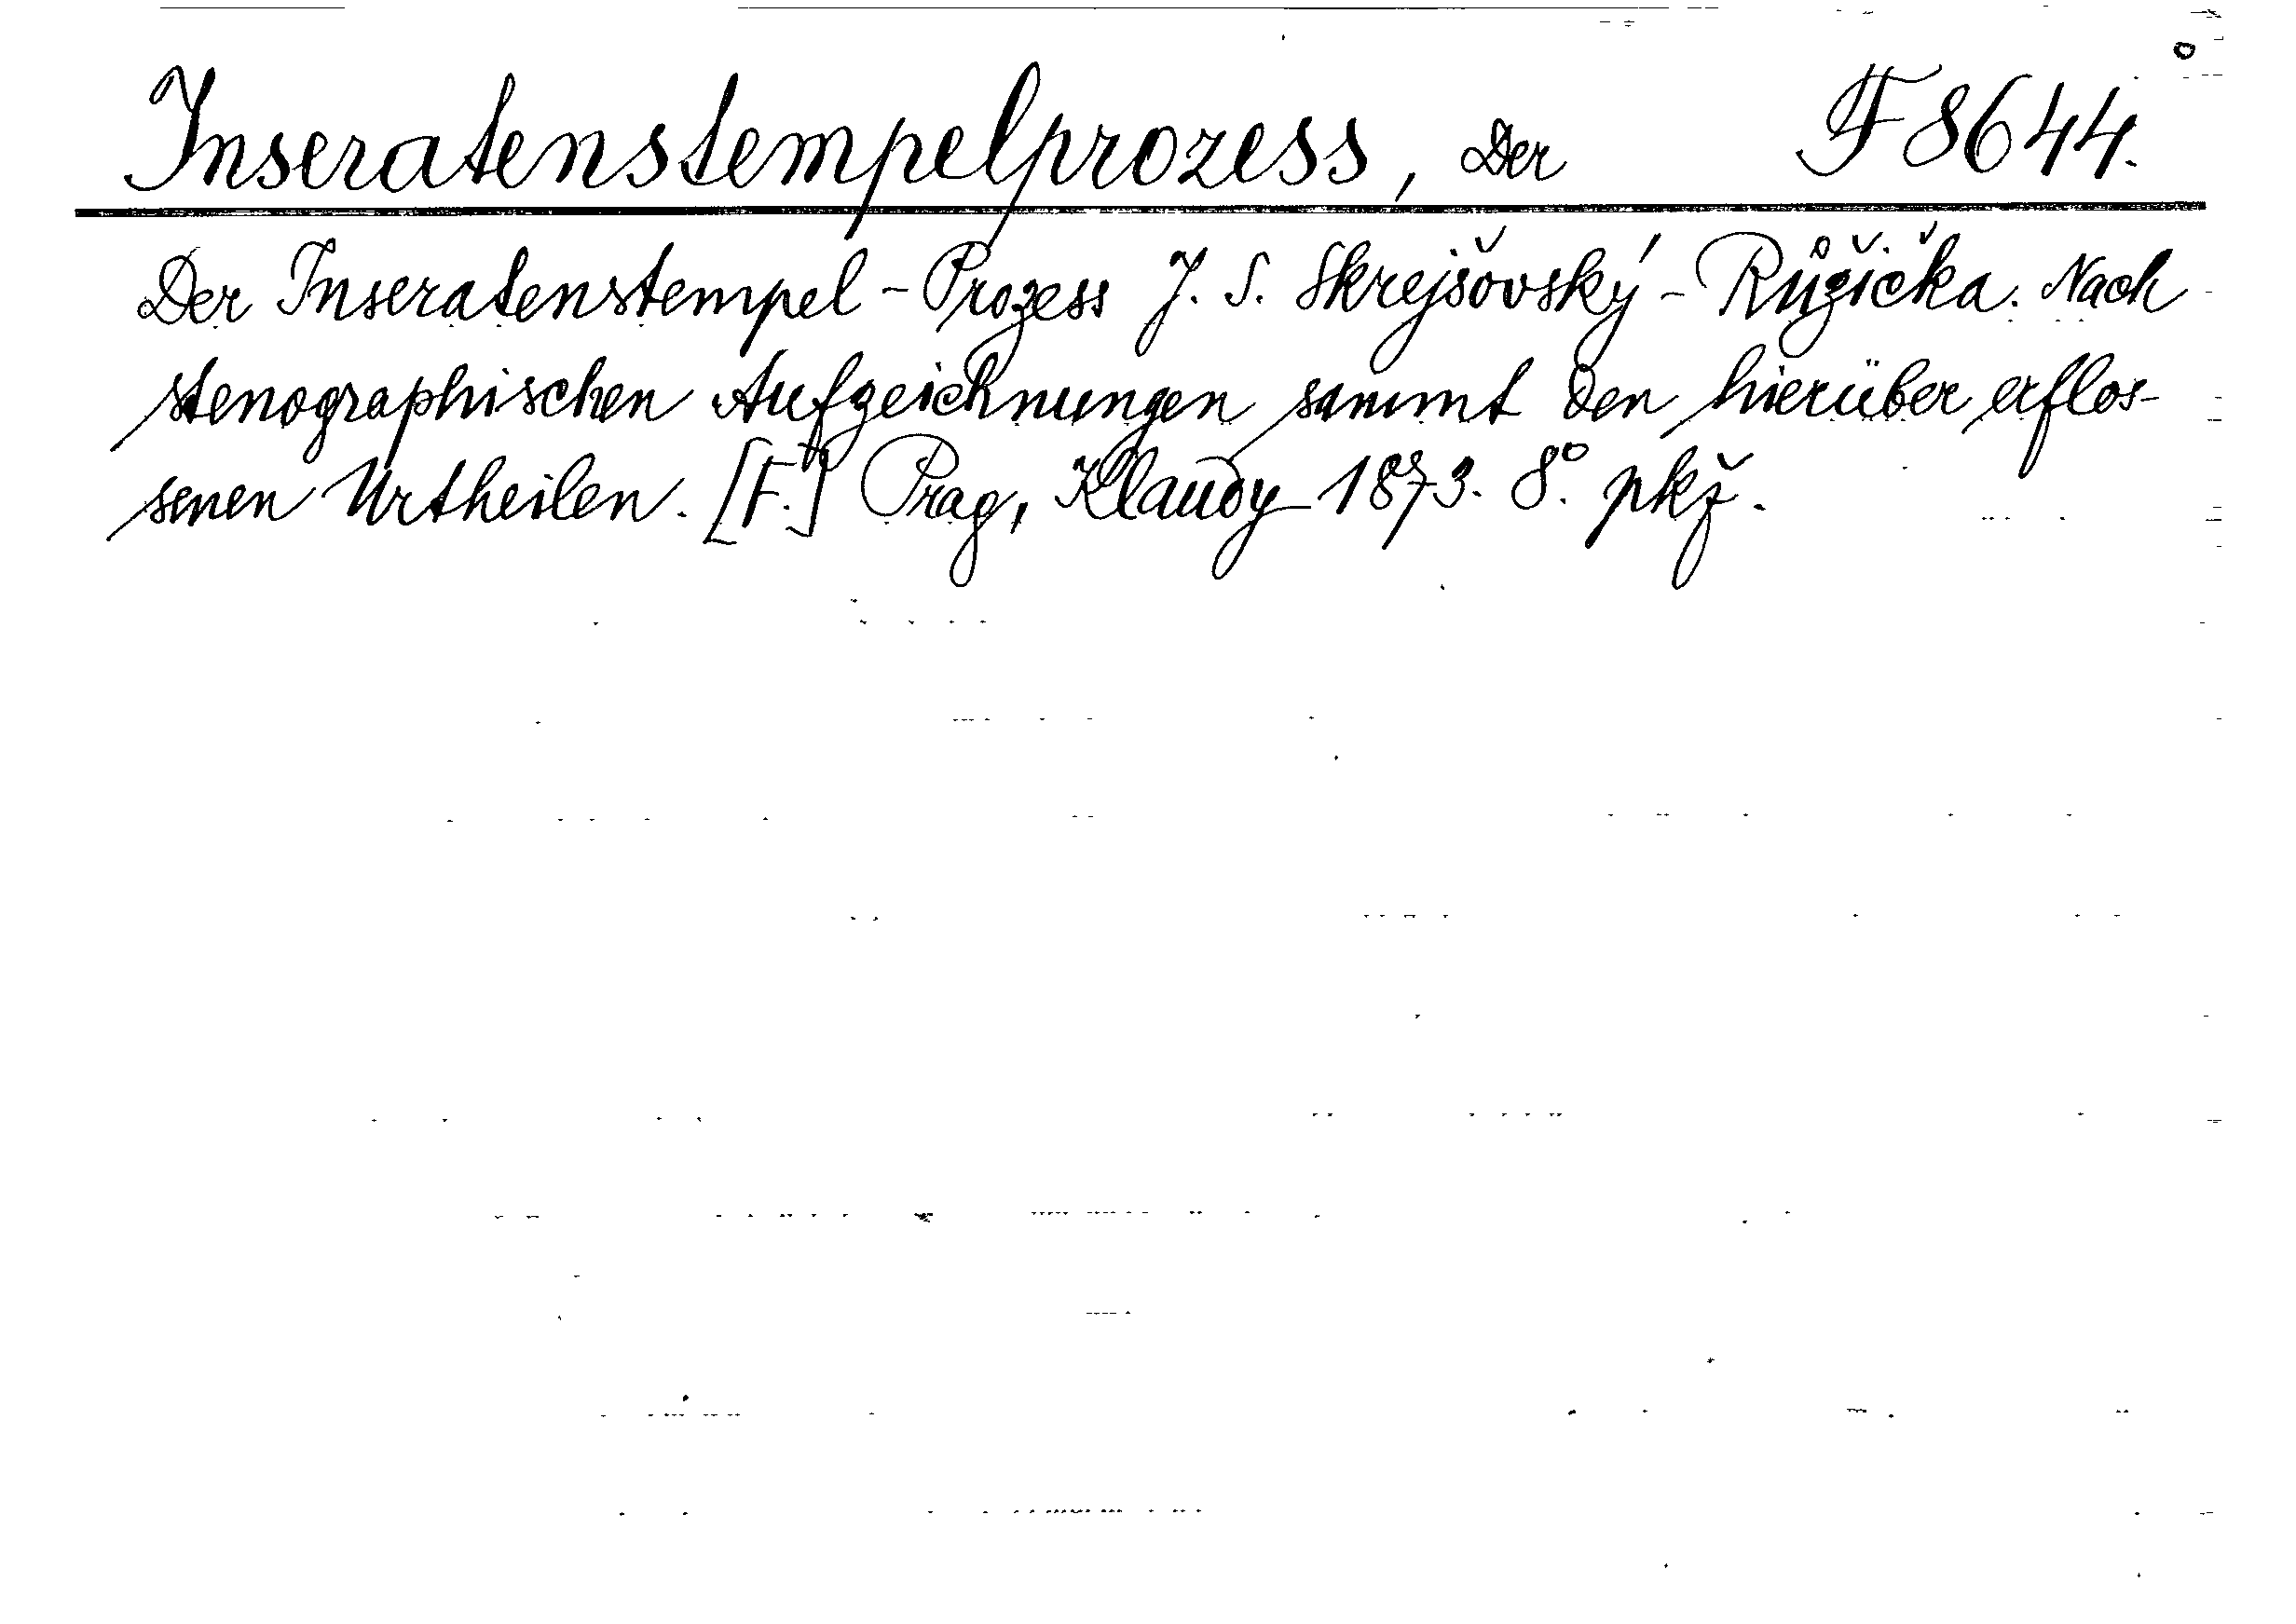 Inseratenstempelprozess, Der F 8644.
Der Inseratenstempel-Prozess J. S. Skrejšovský-Růžička. Nach
stenographischen Aufzeichnungen sammt den hierüber erflos-
senen Urtheilen. [F.] Prag, Klaudy 1873. 8°. pkž.